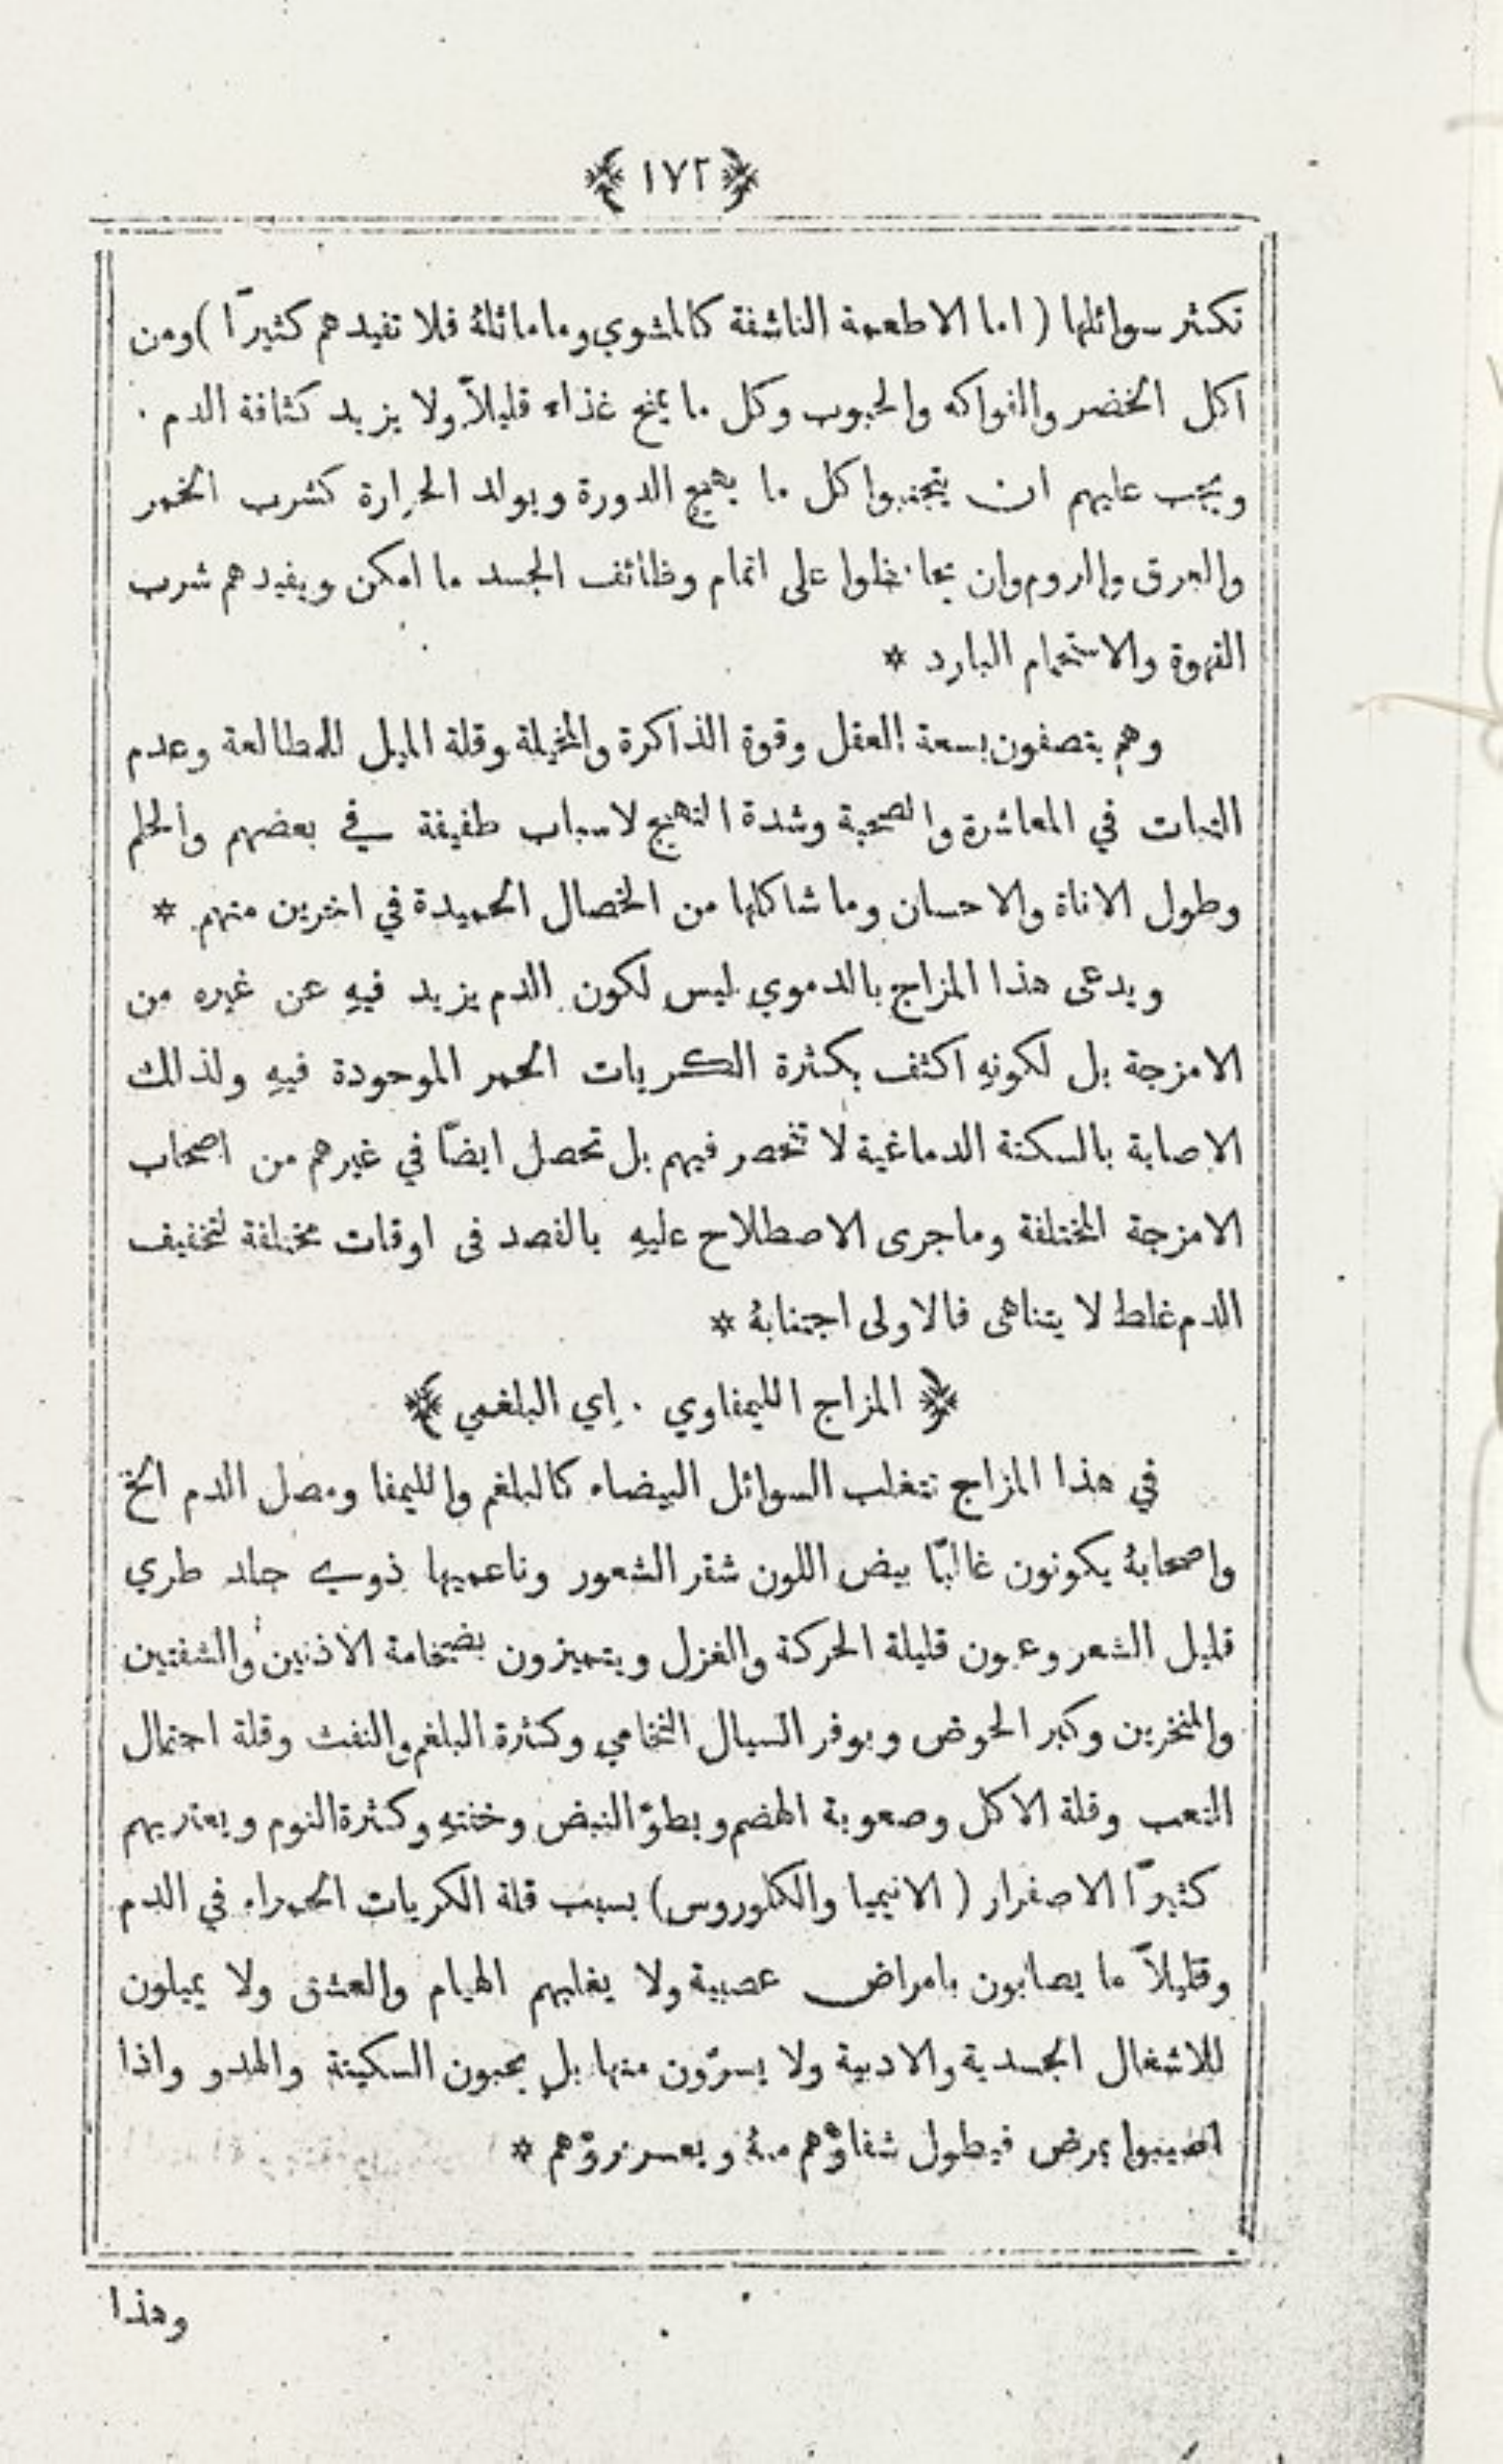 ﴿ ١٧٢ ﴾
تكثر سوائلها ( اما الاطعمة الناشفة كالمشوي وما ماثلهُ فلا تفيدهم كثيرًا ) ومن
اكل الخضر والفواكه والحبوب وكل ما يمنح غذاء قليلاً ولا يزيد كثافة الدم .
ويجب عليهم ان يتجنبوا كل ما يهيج الدورة ويولد الحرارة كشرب الخمر
والعرق والروم وان يحافظوا على اتمام وظائف الجسد ما امكن ويفيدهم شرب
القهوة والاستحمام البارد *
وهم يتصفون بسعة العقل وقوة الذاكرة والمخيلة وقلة الميل للمطالعة وعدم
الثبات في المعاشرة والصحبة وشدة التهيج لاسباب طفيفة في بعضهم والحلم
وطول الاناة والاحسان وما شاكلها من الخصال الحميدة في اخرين منهم *
ويدعى هذا المزاج بالدموي ليس لكون الدم يزيد فيهِ عن غيره من
الامزجة بل لكونهِ اكثف بكثرة الكريات الحمر الموجودة فيهِ ولذالك
الاصابة بالسكتة الدماغية لا تنحصر فيهم بل تحصل ايضًا في غيرهم من اصحاب
الامزجة المختلفة وما جرى الاصطلاح عليهِ بالفصد فى اوقات مختلفة لتخفيف
الدم غلط لا يتناهى فالاولى اجتنابهُ *
﴿ المزاج الليمفاوي . اي البلغمي ﴾
في هذا المزاج تتغلب السوائل البيضاء كالبلغم والليمفا ومصل الدم الخ
واصحابهُ يكونون غالبًا بيض اللون شقر الشعور وناعميها ذوي جلد طري
قليل الشعر وعيون قليلة الحركة والغزل ويتميزون بضخامة الاذنين والشفتين
والمنخرين وكبر الحوض وبوفر السيال النخامي وكثرة البلغم والنفث وقلة احتمال
التعب وقلة الاكل وصعوبة الهضم وبطوّ النبض وخفتهِ وكثرة النوم ويعتريهم
كثيرًا الاصفرار ( الانيميا والكلوروس ) بسبب قلة الكريات الحمراء في الدم
وقليلاً ما يصابون بامراض عصبية ولا يغلبهم الهيام والعشق ولا يميلون
للاشغال الجسدية والادبية ولا يسرّون منها بل يحبون السكينة والهدو واذا
اصيبوا بمرض فيطول شفاوّهم منهُ ويعسر بروّهم *
وهذا